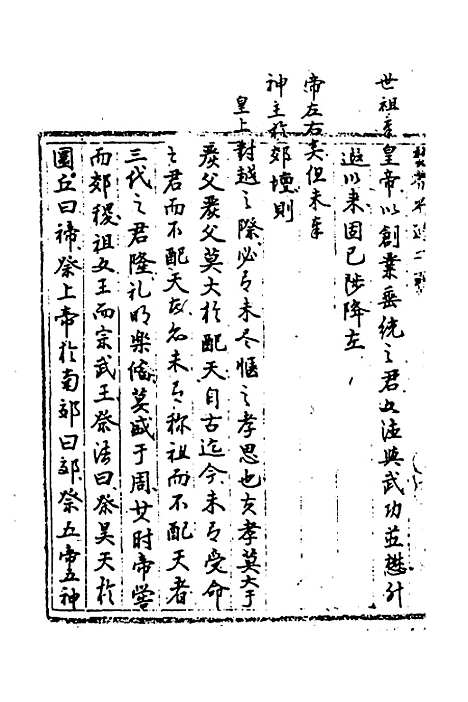 世祖章皇帝以創業垂統之君文德與武功並懋升
遐以来固已陟降左
帝左右矣但未奉
神主於郊壇則
皇上對越之際必有未尽愜之孝思也夫孝莫大于
嚴父嚴父莫大於配天自古迄今未有受命
之君而不配天者亦未有称祖而不配天者
三代之君隆礼明樂俻莫盛于周其时帝嚳
而郊稷祖文王而宗武王祭法曰祭昊天於
圜丘曰禘祭上帝於南郊曰郊祭五帝五神